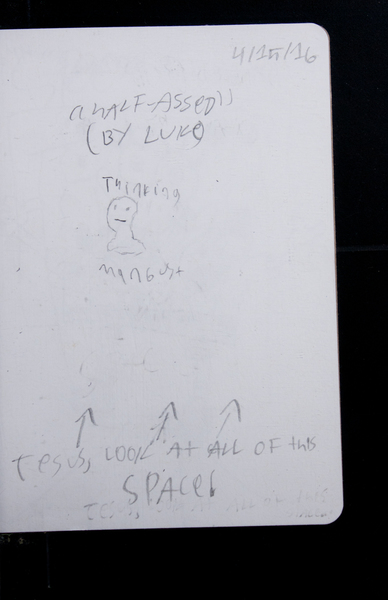 4/15/16
"HALF-ASSED"
(BY LUKE)
Thinking
mangust
JESUS, LOOK AT ALL OF this
SPACE!